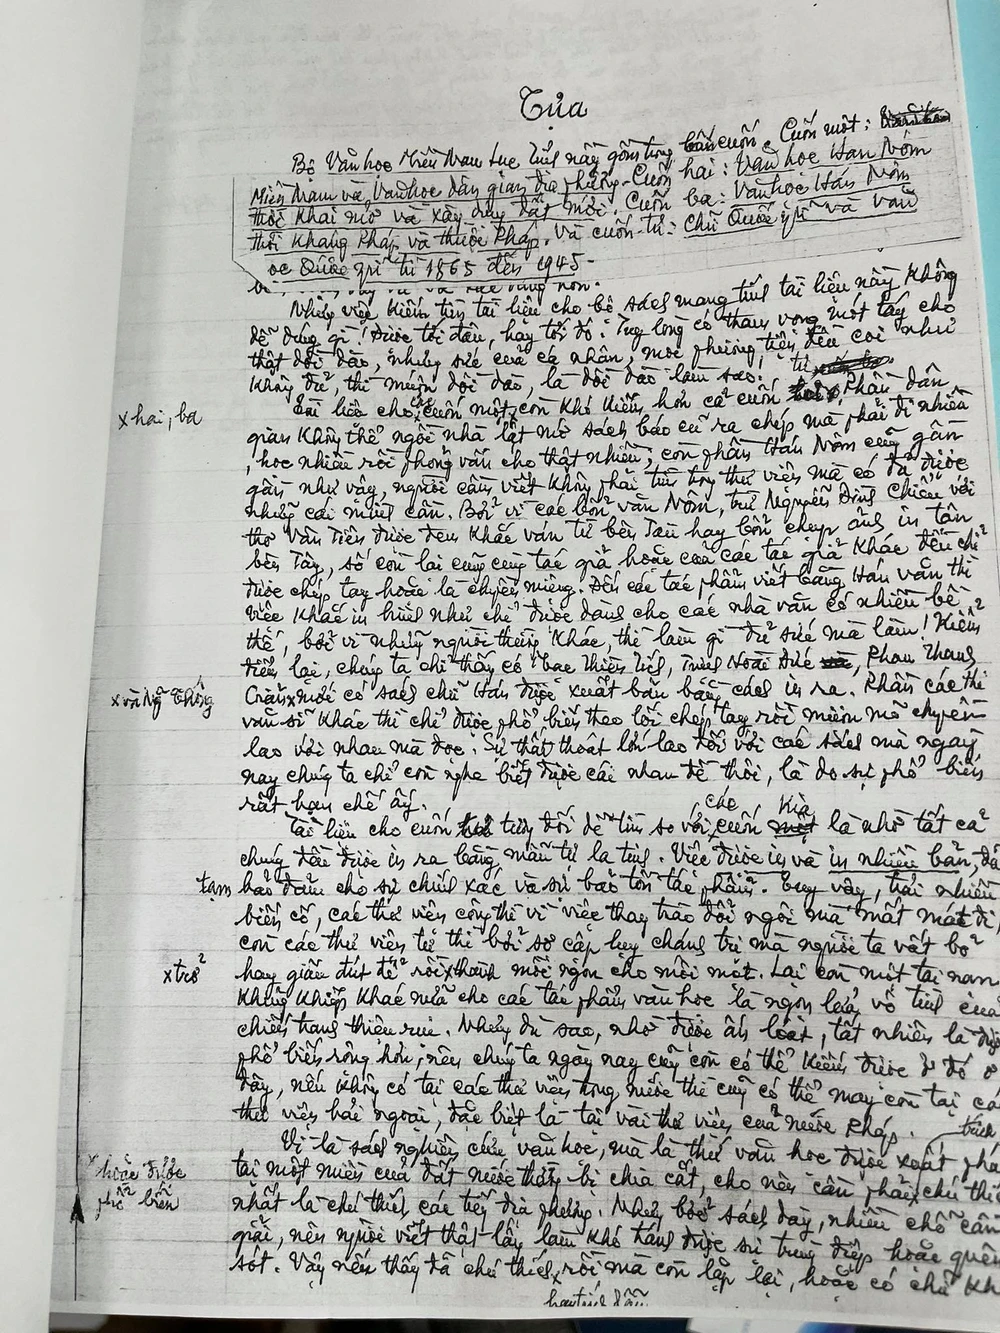 Tựa
Bộ Văn học Miền Nam Lục Tỉnh này gồm trong bốn cuốn. Cuốn một:
Miền Nam và Văn học dân gian địa phương. Cuốn hai: Văn học Hán Nôm
thời Khai mở và xây dựng đất mới. Cuốn ba: Văn học Hán Nôm
thời Kháng Pháp và thuộc Pháp. Và cuốn tư: Chữ Quốc ngữ và văn
ọc Quốc ngữ từ 1865 đến 1945.
Những việc kiếm tìm tài liệu cho bộ sách mang tính tài liệu này không
dễ dàng gì! Được tới đâu, hay tới đó. Tuy lòng có tham vọng một tay cho
thật dồi dào, nhưng sức của cá nhân, mọi phương tiện đều coi như
không đủ, thì muốn dồi dào, là dồi dào làm sao.
Tài liệu cho cuốn một, còn khó kiếm hơn cả cuốn tư. Phần dân
x hai, ba
gian không thể ngồi nhà lật mở sách báo cũ ra chép mà phải đi nhiều
, học nhiều rồi phỏng vấn cho thật nhiều; còn phần Hán Nôm cũng gần
gần như vậy, người cầm viết không phải tìm trong thư viện mà có đủ được
những cái mình cần. Bởi vì các bổn văn Nôm, trừ Nguyễn Đình Chiểu với
thơ Vân Tiên được đem khắc ván từ bên Tàu hay bổn chép in tận
bên Tây, số còn lại cùng tác giả hoặc của các tác giả khác đều chỉ
được chép tay hoặc là truyền miệng. Đến các tác phẩm viết bằng Hán văn thì
việc khắc in hình như chỉ được dành cho các nhà văn có nhiều bề
thế, bởi vì những người thường khác, thì làm gì đủ sức mà làm! Kiểm
điểm lại, chúng ta chỉ thấy có bạc Thiên Tích, Trịnh Hoài Đức, Phan Thanh
x và Ng Thông
Giản x mới có sách chữ Hán được xuất bản bằng cách in ra. Phần các thi
văn sĩ khác thì chỉ được phổ biến theo lối chép tay rồi mượn mõ chuyền
lao với nhau mà đọc. Sự thất thoát lớn lao đối với các sách mà ngày
nay chúng ta chỉ còn nghe biết được cái nhan đề thôi, là do sự phổ biến
rất hạn chế ấy.
Tài liệu cho cuốn tư tương đối dễ tìm so với các cuốn kia là nhờ tất cả
chúng đều được in ra bằng mẫu tự la tinh. Việc được in và in nhiều bản, đã
tạm bảo đảm cho sự chính xác và sự bảo tồn tác phẩm. Tuy vậy, trải nhiều
biến cố, các thư viện công thì vì việc thay tráo đổi ngôi mà mất mát đi,
còn các thư viện tư thì bởi sợ cấp lũy chánh trị mà người ta vất bỏ
x trở
hay giấu đút để rồi x thành mồi ngon cho mối mọt. Lại còn một tai nạn
khủng khiếp khác nữa cho các tác phẩm văn học là ngọn lửa vô tình của
chiến tranh thiêu rụi. Nhưng dù sao, nhờ được ấn loát, tất nhiên là được
phổ biến rộng hơn; nên chúng ta ngày nay cũng còn có thể kiếm được ở đó ở
đây, nếu không có tại các thư viện trong nước thì cũng có thể may còn tại các
thư viện hải ngoại, đặc biệt là tại vài thư viện của nước Pháp.
Vì là sách nghiên cứu văn học, mà là thứ văn học được xuất phát
x hoặc được
phổ biến
tại một miền của đất nước thường bị chia cắt, cho nên cần phải chú thích
nhất là chú thích các tiếng địa phương. Nhưng bởi sách dày, nhiều chỗ cần
giải, nên người viết thật lấy làm khó tránh được sự trùng điệp hoặc quên
sót. Vậy nếu thấy đã chú thích x rồi mà còn lặp lại, hoặc có chữ kh